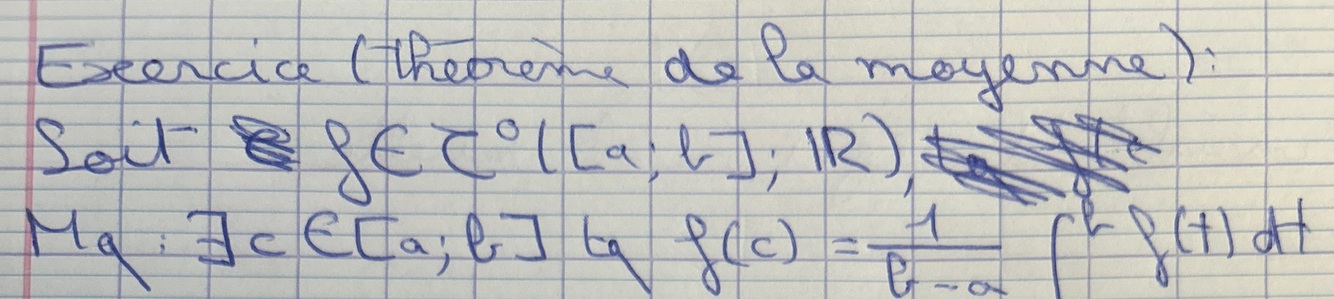 Exercice (théorème de la moyenne) :
Soit f ∈ C⁰([a; b]; ℝ),
Mq : ∃c ∈ [a; b] tq f(c) = 1/(b-a) ∫^b f(t) dt